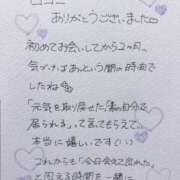 ありがとうございました
初めてお会いしてから2ヶ月。
気づけばあっという間の時間で
したね
「元気を取り戻せた」「素の自分で
居られる」って言ってもらえて
本当に嬉しいです!!
これからも「今日会えて良かった」
と思える時間を一緒に